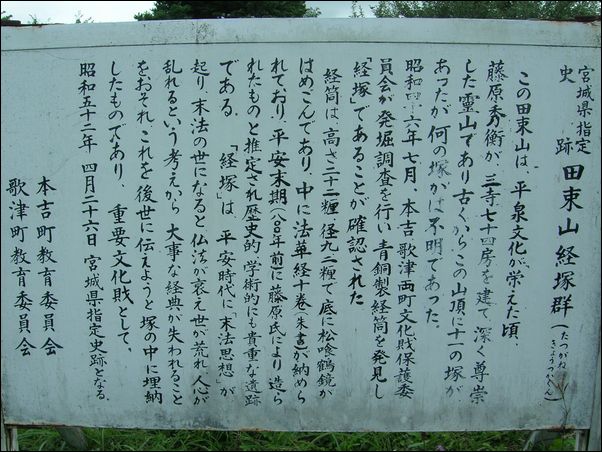 宮城県指定
史跡 田束山経塚群(たつがねきょうづかぐん)
この田束山は、平泉文化が栄えた頃、
藤原秀衡が、三寺七十四房を建て深く尊崇
した霊山であり古くからこの山頂に十一の塚が
あったが何の塚かは不明であった。
昭和四十六年七月、本吉歌津両町文化財保護委
員会が発掘調査を行い青銅製経筒を発見し
「経塚」であることが確認された
経筒は、高さ二十二糎径九・二糎で底に松喰鶴鏡が
はめこんであり、中に法華経十巻(朱書)が納めら
れており、平安末期(八〇〇年前)に藤原氏により造ら
れたものと推定され歴史的、学術的にも貴重な遺跡
である。「経塚」は、平安時代に「末法思想」が
起り、末法の世になると仏法が衰え世が荒れ人心が
乱れるという考えから大事な経典が失われること
をおそれこれを後世に伝えようと塚の中に埋納
したものであり、重要文化財として、
昭和五十二年 四月二十六日 宮城県指定史跡となる
本吉町教育委員会
歌津町教育委員会